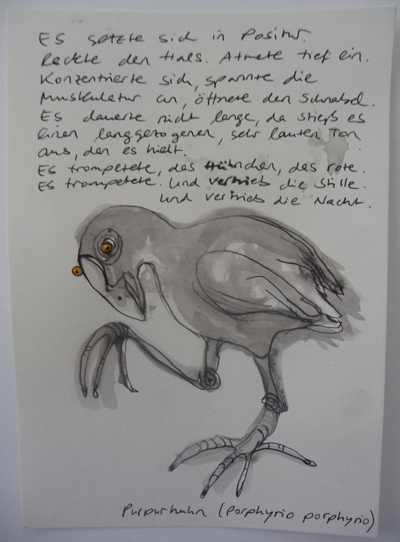 Es setzte sich in Positur.
Reckte den Hals. Atmete tief ein.
Konzentrierte sich, spannte die
Muskulatur an, öffnete den Schnabel.
Es dauerte nicht lange, da stieß es
einen langgezogenen, sehr lauten Ton
aus, den es hielt.
Es trompetete, das Hühnchen, das rote.
Es trompetete. Und vertrieb die Stille.
Und vertrieb die Nacht.
Purpurhuhn (porphyrio porphyrio)